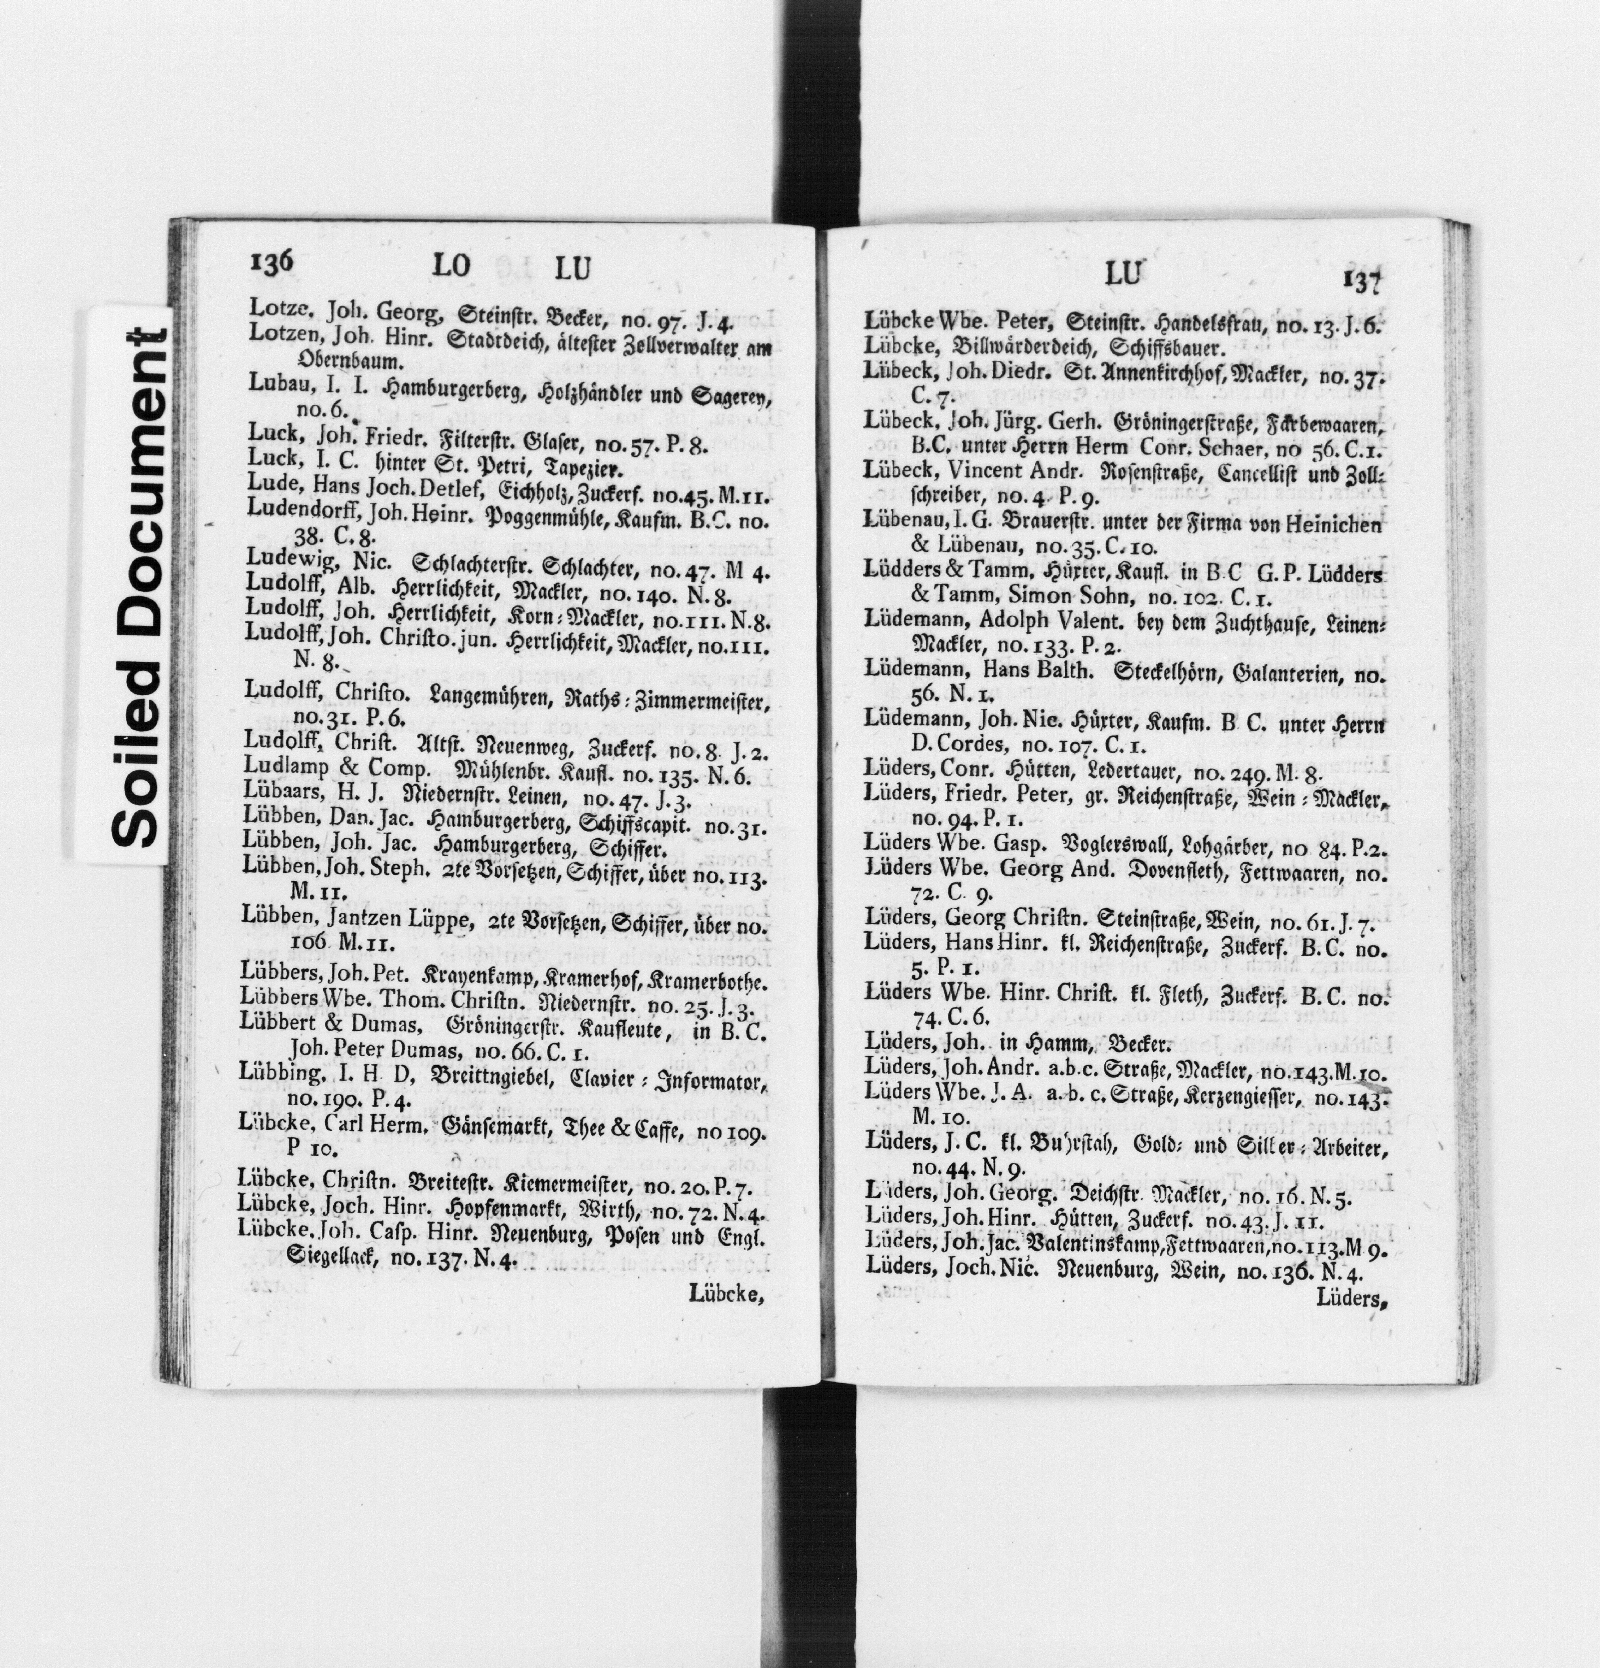 Soiled Document
136 LO LU
Lotze, Joh. Georg, Steinstr. Becker, no. 97. J. 4.
Lotzen, Joh. Hinr. Stadtdeich, ältester Zollverwalter am
Obernbaum.
Lubau, I. I. Hamburgerberg, Holzhändler und Sagerey,
no. 6.
Luck, Joh. Friedr. Filterstr. Glaser, no. 57. P. 8.
Luck, I. C. hinter St. Petri, Tapezier.
Lude, Hans Joch. Detlef, Eichholz, Zuckerf. no. 45. M. 11.
Ludendorff, Joh. Heinr. Poggenmühle, Kaufm. B. C. no.
38. C. 8.
Ludewig, Nic. Schlachterstr. Schlachter, no. 47. M 4.
Ludolff, Alb. Herrlichkeit, Mackler, no. 140. N. 8.
Ludolff, Joh. Herrlichkeit, Korn-Mackler, no. 111. N. 8.
Ludolff, Joh. Christo. jun. Herrlichkeit, Mackler, no. 111.
N. 8.
Ludolff, Christo. Langemühren, Raths-Zimmermeister,
no. 31. P. 6.
Ludolff, Christ. Altst. Neuenweg, Zuckerf. no. 8. J. 2.
Ludlamp & Comp. Mühlenbr. Kaufl. no. 135. N. 6.
Lübaars, H. J. Niedernstr. Leinen, no. 47. J. 3.
Lübben, Dan. Jac. Hamburgerberg, Schiffscapit. no. 31.
Lübben, Joh. Jac. Hamburgerberg, Schiffer.
Lübben, Joh. Steph. 2te Vorsetzen, Schiffer, über no. 113.
M. 11.
Lübben, Jantzen Lüppe, 2te Vorsetzen, Schiffer, über no.
106 M. 11.
Lübbers, Joh. Pet. Krayenkamp, Kramerhof, Kramerbothe.
Lübbers Wbe. Thom. Christn. Niedernstr. no. 25. J. 3.
Lübbert & Dumas, Gröningerstr. Kaufleute, in B. C.
Joh. Peter Dumas, no. 66. C. 1.
Lübbing, I. H D, Breittngiebel, Clavier-Informator,
no. 190. P. 4.
Lübcke, Carl Herm. Gänsemarkt, Thee & Caffe, no 109.
P 10.
Lübcke, Christn. Breitestr. Kiemermeister, no. 20. P. 7.
Lübcke, Joch. Hinr. Hopfenmarkt, Wirth, no. 72. N. 4.
Lübcke, Joh. Casp. Hinr. Neuenburg, Posen und Engl.
Siegellack, no. 137. N. 4.
Lübcke,
LU 137
Lübcke Wbe. Peter, Steinstr. Handelsfrau, no. 13. J. 6.
Lübcke, Billwärderdeich, Schiffsbauer.
Lübeck, Joh. Diedr. St. Annenkirchhof, Mackler, no. 37.
C. 7.
Lübeck, Joh. Jürg. Gerh. Gröningerstraße, Farbewaaren,
B. C. unter Herrn Herm Conr. Schaer, no 56. C. 1.
Lübeck, Vincent Andr. Rosenstraße, Cancellist und Zoll-
schreiber, no. 4 P. 9.
Lübenau, I. G. Brauerstr. unter der Firma von Heinichen
& Lübenau, no. 35. C. 10.
Lüdders & Tamm, Hüxter, Kaufl. in B C G. P. Lüdders
& Tamm, Simon Sohn, no. 102. C. 1.
Lüdemann, Adolph Valent. bey dem Zuchthause, Leinen-
Mackler, no. 133. P. 2.
Lüdemann, Hans Balth. Steckelhörn, Galanterien, no.
56. N. 1.
Lüdemann, Joh. Nic. Hüxter, Kaufm. B C. unter Herrn
D. Cordes, no. 107. C. 1.
Lüders, Conr. Hütten, Ledertauer, no. 249. M. 8.
Lüders, Friedr. Peter, gr. Reichenstraße, Wein-Mackler,
no. 94. P. 1.
Lüders Wbe. Gasp. Voglerswall, Lohgärber, no 84. P. 2.
Lüders Wbe. Georg And. Dovenfleth, Fettwaaren, no.
72. C. 9.
Lüders, Georg Christn. Steinstraße, Wein, no. 61. J. 7.
Lüders, Hans Hinr. kl. Reichenstraße, Zuckerf. B. C. no.
5. P. 1.
Lüders Wbe. Hinr. Christ. kl. Fleth, Zuckerf. B. C. no.
74. C. 6.
Lüders, Joh. in Hamm, Becker.
Lüders, Joh. Andr. a. b. c. Straße, Mackler, no. 143. M. 10.
Lüders Wbe. J. A. a. b. c. Straße, Kerzengiesser, no. 143.
M. 10.
Lüders, J. C. kl. Buhrstah, Gold- und Silber-Arbeiter,
no. 44. N. 9.
Lüders, Joh. Georg. Deichstr. Mackler, no. 16. N. 5.
Lüders, Joh. Hinr. Hütten, Zuckerf. no. 43. J. 11.
Lüders, Joh. Jac. Valentinskamp, Fettwaaren, no. 113. M 9.
Lüders, Joch. Nic. Neuenburg, Wein, no. 136. N. 4.
Lüders,